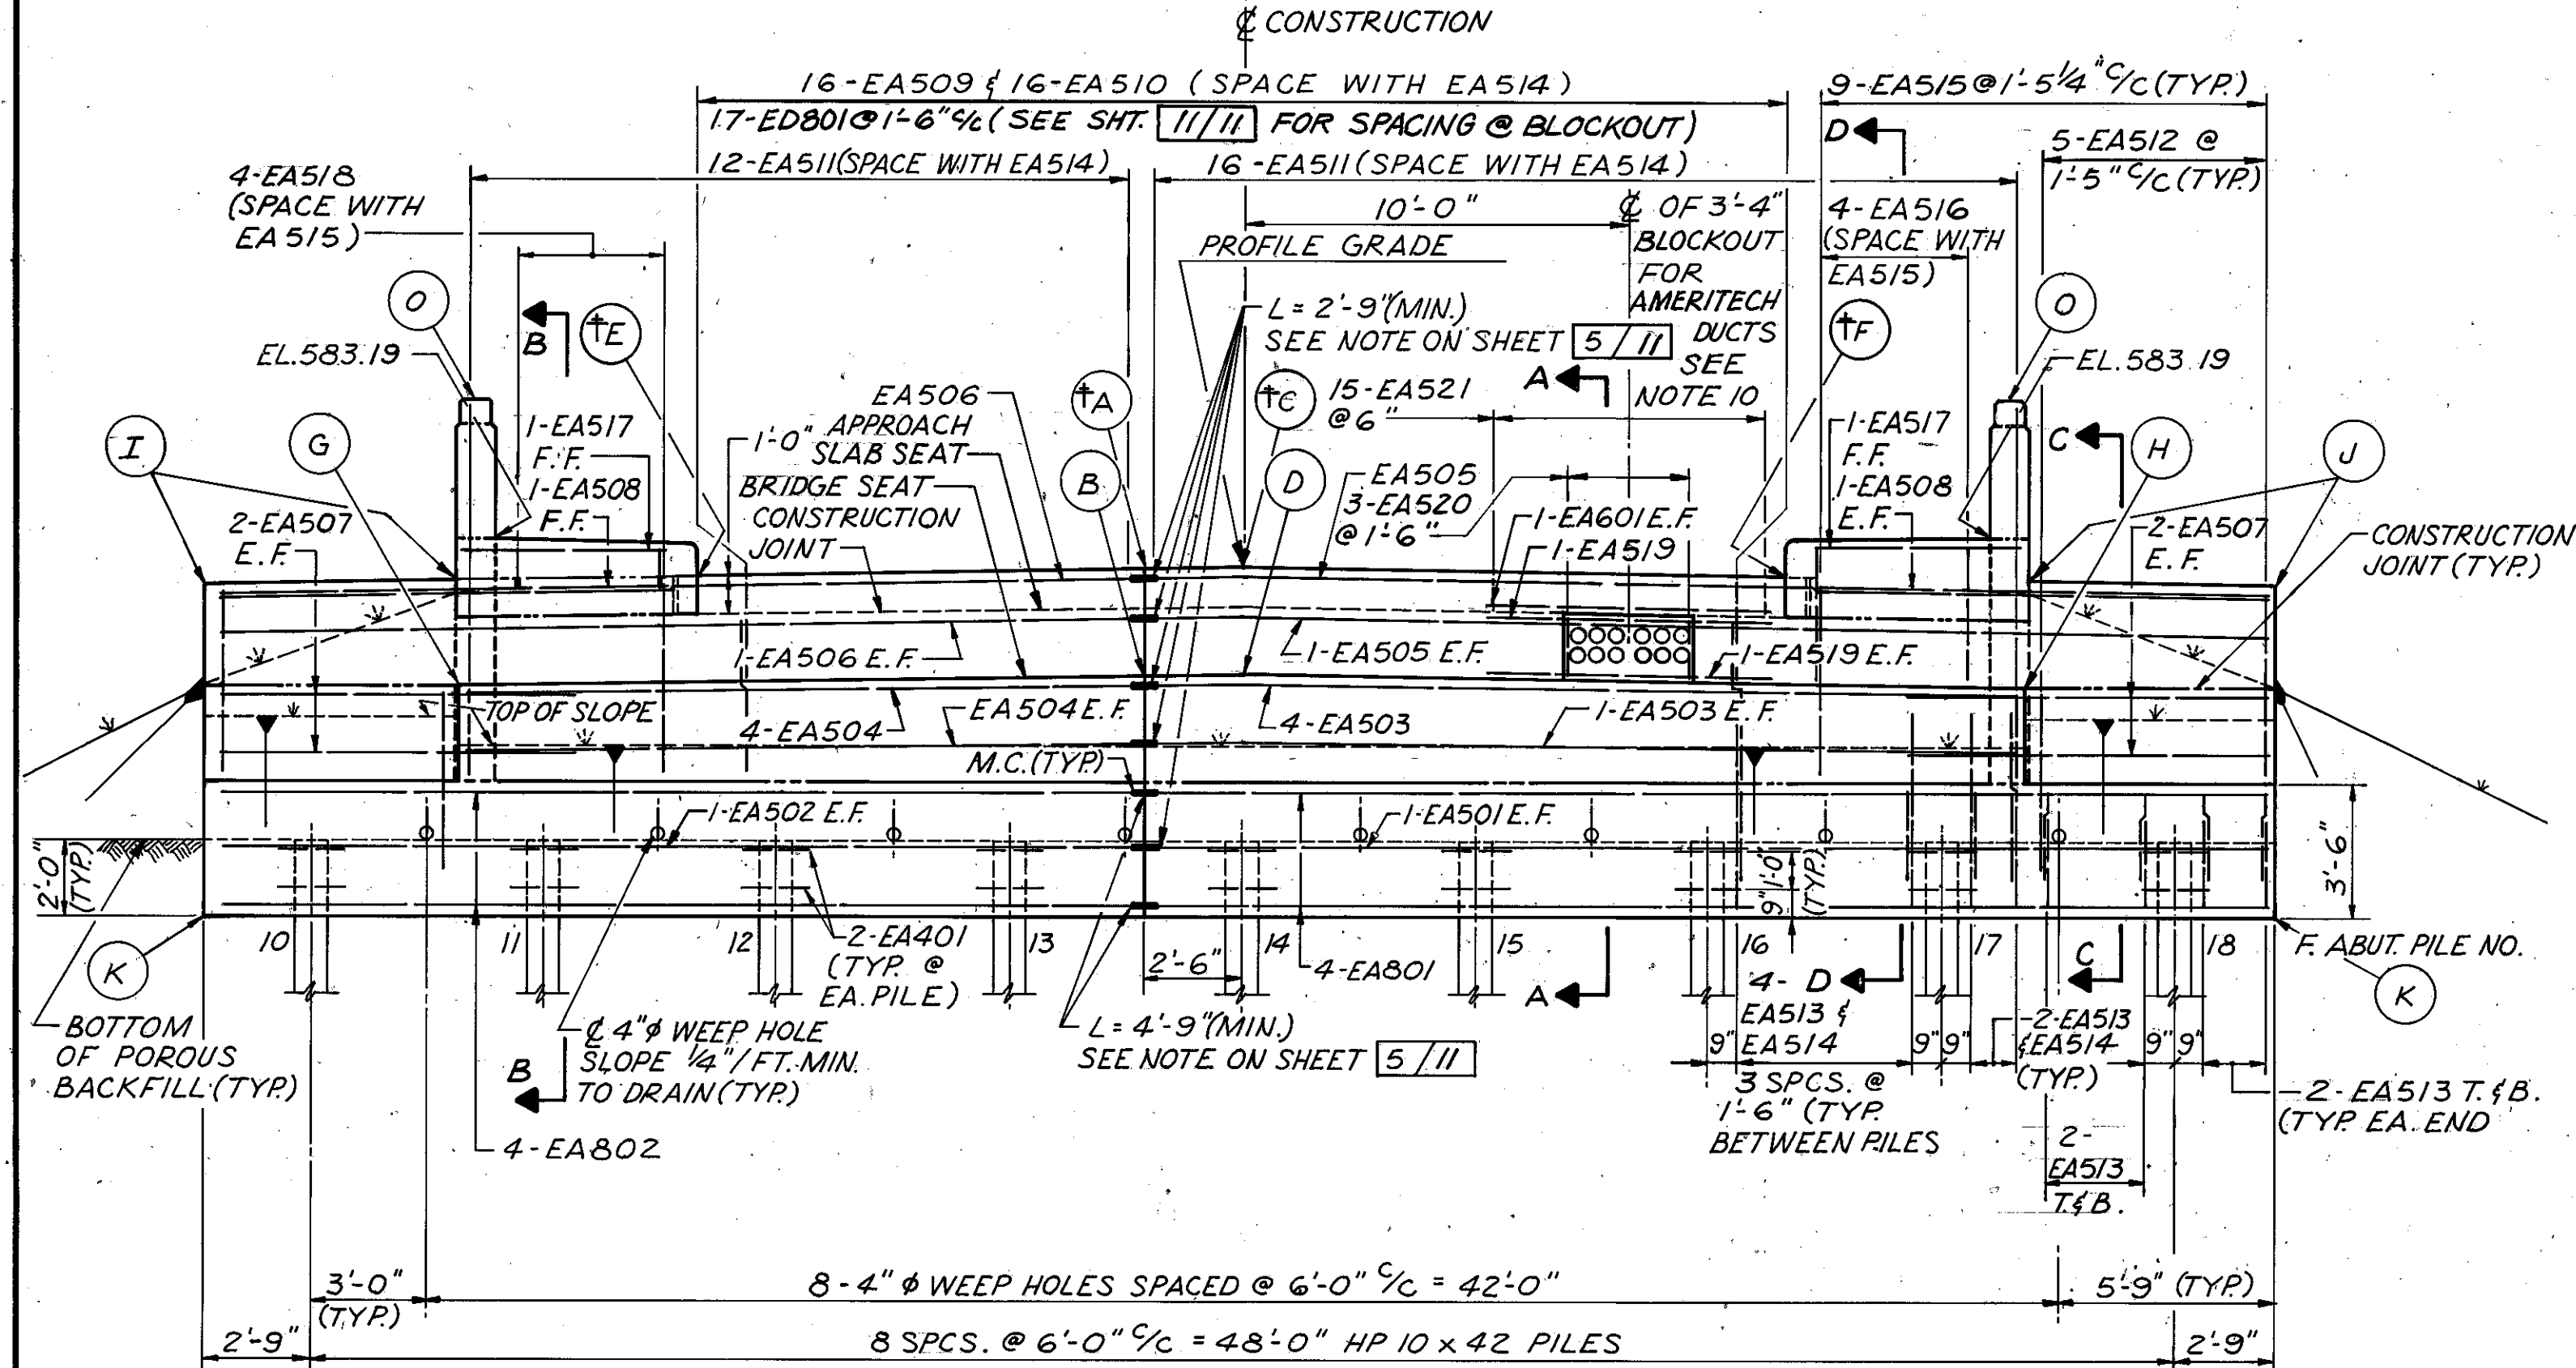 ℄ CONSTRUCTION
16-EA509 & 16-EA510 (SPACE WITH EA514)
9-EA515@1'-5¼" C/C (TYP.)
17-ED801@1'-6" C/C (SEE SHT. 11/11 FOR SPACING @ BLOCKOUT)
D
5-EA512 @
1'-5" C/C (TYP.)
12-EA511(SPACE WITH EA514)
16-EA511(SPACE WITH EA514)
4-EA518
(SPACE WITH
EA515)
10'-0"
℄ OF 3'-4"
BLOCKOUT
FOR
AMERITECH
DUCTS
SEE
NOTE 10
4-EA516
(SPACE WITH
EA515)
PROFILE GRADE
L = 2'-9"(MIN.)
SEE NOTE ON SHEET 5/11
O
B
†E
EL.583.19
†F
O
EL.583.19
A
EA506
†A
†C
15-EA521
@ 6"
I
G
1-EA517
F.F.
1-EA508
F.F.
1'-0" APPROACH
SLAB SEAT
BRIDGE SEAT
CONSTRUCTION
JOINT
B
D
EA505
3-EA520
@ 1'-6"
1-EA601 E.F.
1-EA519
1-EA517
F.F.
1-EA508
E.F.
C
H
J
2-EA507
E.F.
2-EA507
E.F.
CONSTRUCTION
JOINT (TYP.)
1-EA506 E.F.
1-EA505 E.F.
1-EA519 E.F.
TOP OF SLOPE
4-EA504
EA504 E.F.
4-EA503
1-EA503 E.F.
M.C.(TYP.)
1-EA502 E.F.
1-EA501 E.F.
2'-0"
(TYP.)
9" 1'-0"
(TYP.)
3'-6"
10
11
12
13
14
15
16
17
18
F. ABUT. PILE NO.
K
K
2-EA401
(TYP. @
EA. PILE)
2'-6"
4-EA801
A
4-
EA513 &
EA514
D
C
BOTTOM
OF POROUS
BACKFILL (TYP.)
℄ 4"φ WEEP HOLE
SLOPE ¼"/FT. MIN.
TO DRAIN (TYP.)
B
L = 4'-9"(MIN.)
SEE NOTE ON SHEET 5/11
9"
9" 9"
2-EA513
& EA514
(TYP.)
9" 9"
3 SPCS. @
1'-6" (TYP.
BETWEEN PILES
2-EA513 T. & B.
(TYP. EA. END
4-EA802
2-
EA513
T. & B.
3'-0"
(TYP.)
8-4" φ WEEP HOLES SPACED @ 6'-0" C/C = 42'-0"
5'-9" (TYP.)
2'-9"
8 SPCS. @ 6'-0" C/C = 48'-0" HP 10 x 42 PILES
2'-9"